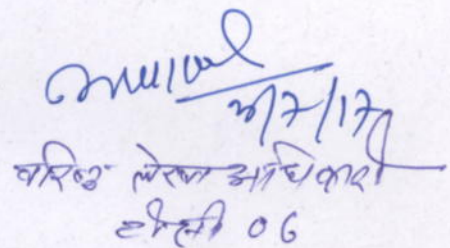 3/7/17
वरिष्ठ लेखा अधिकारी
टोली 06